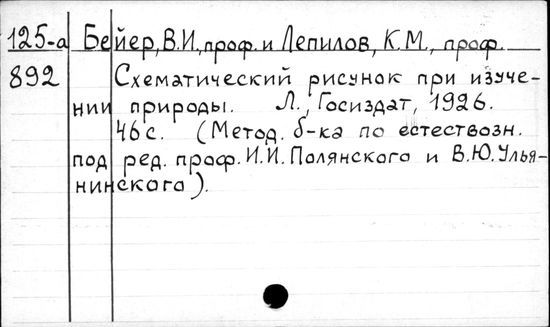 125-а Бейер, В.И., проф. и Лепилов, К.М., проф.
892 Схематический рисунок при изуче-
нии природы. Л., Госиздат, 1926.
46 с. (Метод. б-ка по естествозн.
под ред. проф. И.И. Полянского и В.Ю. Улья-
нинского).